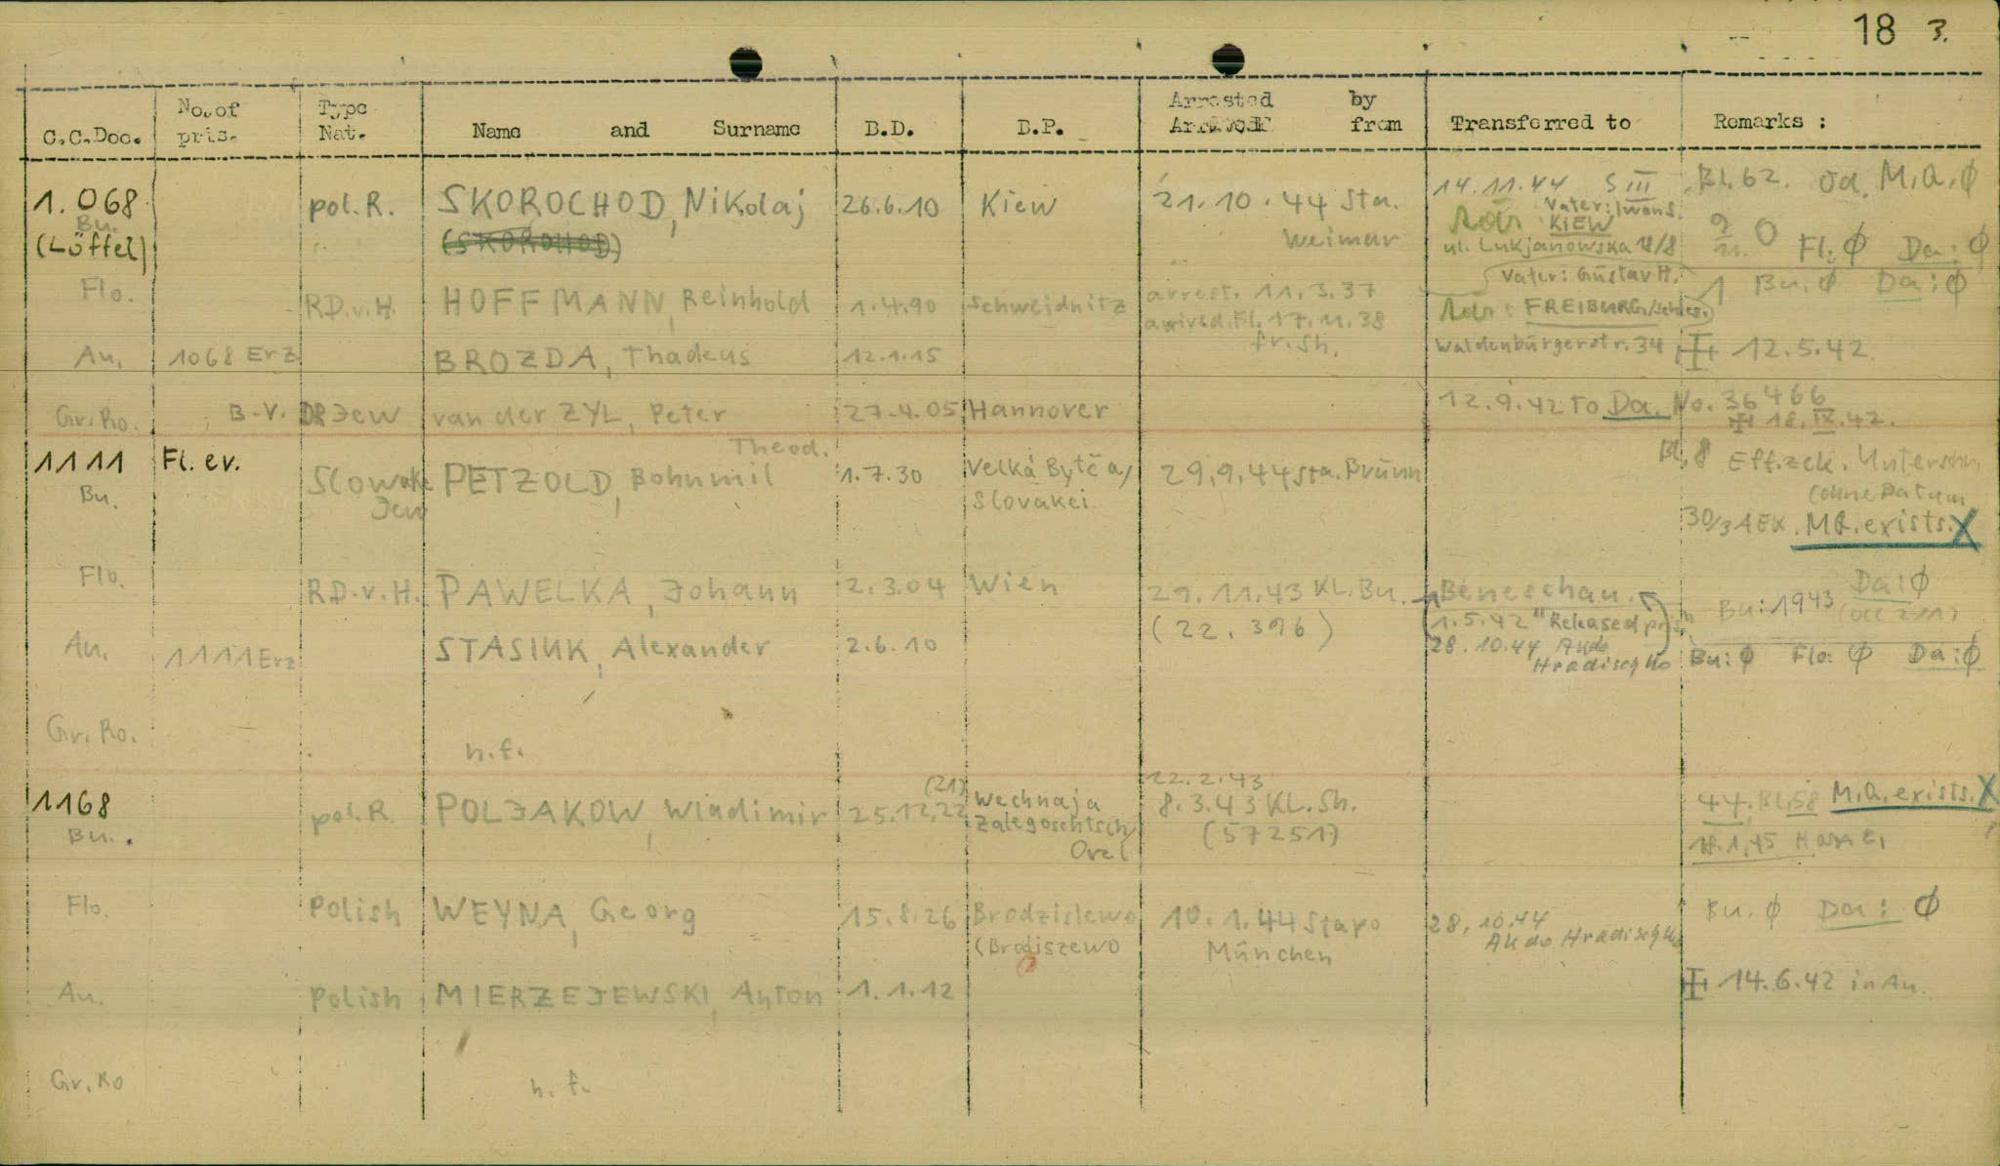 18 3.
C.C.Doc. No. of pris. Type Nat. Name and Surname B.D. B.P. Arrested by from Transferred to Remarks :
1.068 Bu. (Löffel) pol.R. SKOROCHOD, Nikolaj 26.6.10 Kiew 21.10.44 Sta. Weimar 14.11.44 S III Bl.62. M.A.Ø
(SKOROHOD)
Vater: Iwans. KIEW
ul. Lukjanowska 18/8 O Fl: Ø Da: Ø
Flo. RD.v.H. HOFFMANN, Reinhold 1.4.90 Schweidnitz arrest. 11.3.37 Vater: Gustav H. Bu. Ø Da: Ø
arrived. Fl. 17.11.38 fr. Sh. FREIBURG/Schles.)
Waldenburgerstr. 34
Au. 1068 Erz BROZDA, Thadeus 12.1.15 12.5.42.
Gr.Ro. B.-V. DR Jew van der ZYL, Peter 27.4.05 Hannover 12.9.42 to Da. No. 36466
18.IX.42.
1111 Fl. ev.
Bu. Slowak Jew PETZOLD, Bohumil Theod. 1.7.30 Velká Bytča/ Slovakei 29.9.44 Sta. Brünn Bl.8 Eff.zck. Unterschr.
(ohne Datum
30/3 AEK. MR. exists. X
Flo. RD.v.H. PAWELKA, Johann 2.3.04 Wien 29.11.43 KL. Bu. Beneschau. Bu: 1943 Da: Ø
(22.396) 1.5.42 "Released
28.10.44 AKdo Hradischko
Au. 1111 Erz STASIUK, Alexander 2.6.10 Bu: Ø Flo: Ø Da: Ø
Gr. Ro. n.f.
1168
Bu. pol.R. POLJAKOW, Wladimir 25.12.22 (21) Wechnaja Zalegoschtsch/ Orel 22.2.43
8.3.43 KL. Sh. 44. Bl.58 M.A. exists. X
(57251) 18.1.45
Flo. Polish WEYNA, Georg 15.8.26 Brodzislewo (Brodiszewo 10.1.44 Stapo München 28.10.44 AKdo Hradischko Bu. Ø Da: Ø
Au. Polish MIERZEJEWSKI, Anton 1.1.12 14.6.42 in Au.
Gr. Ro n.f.